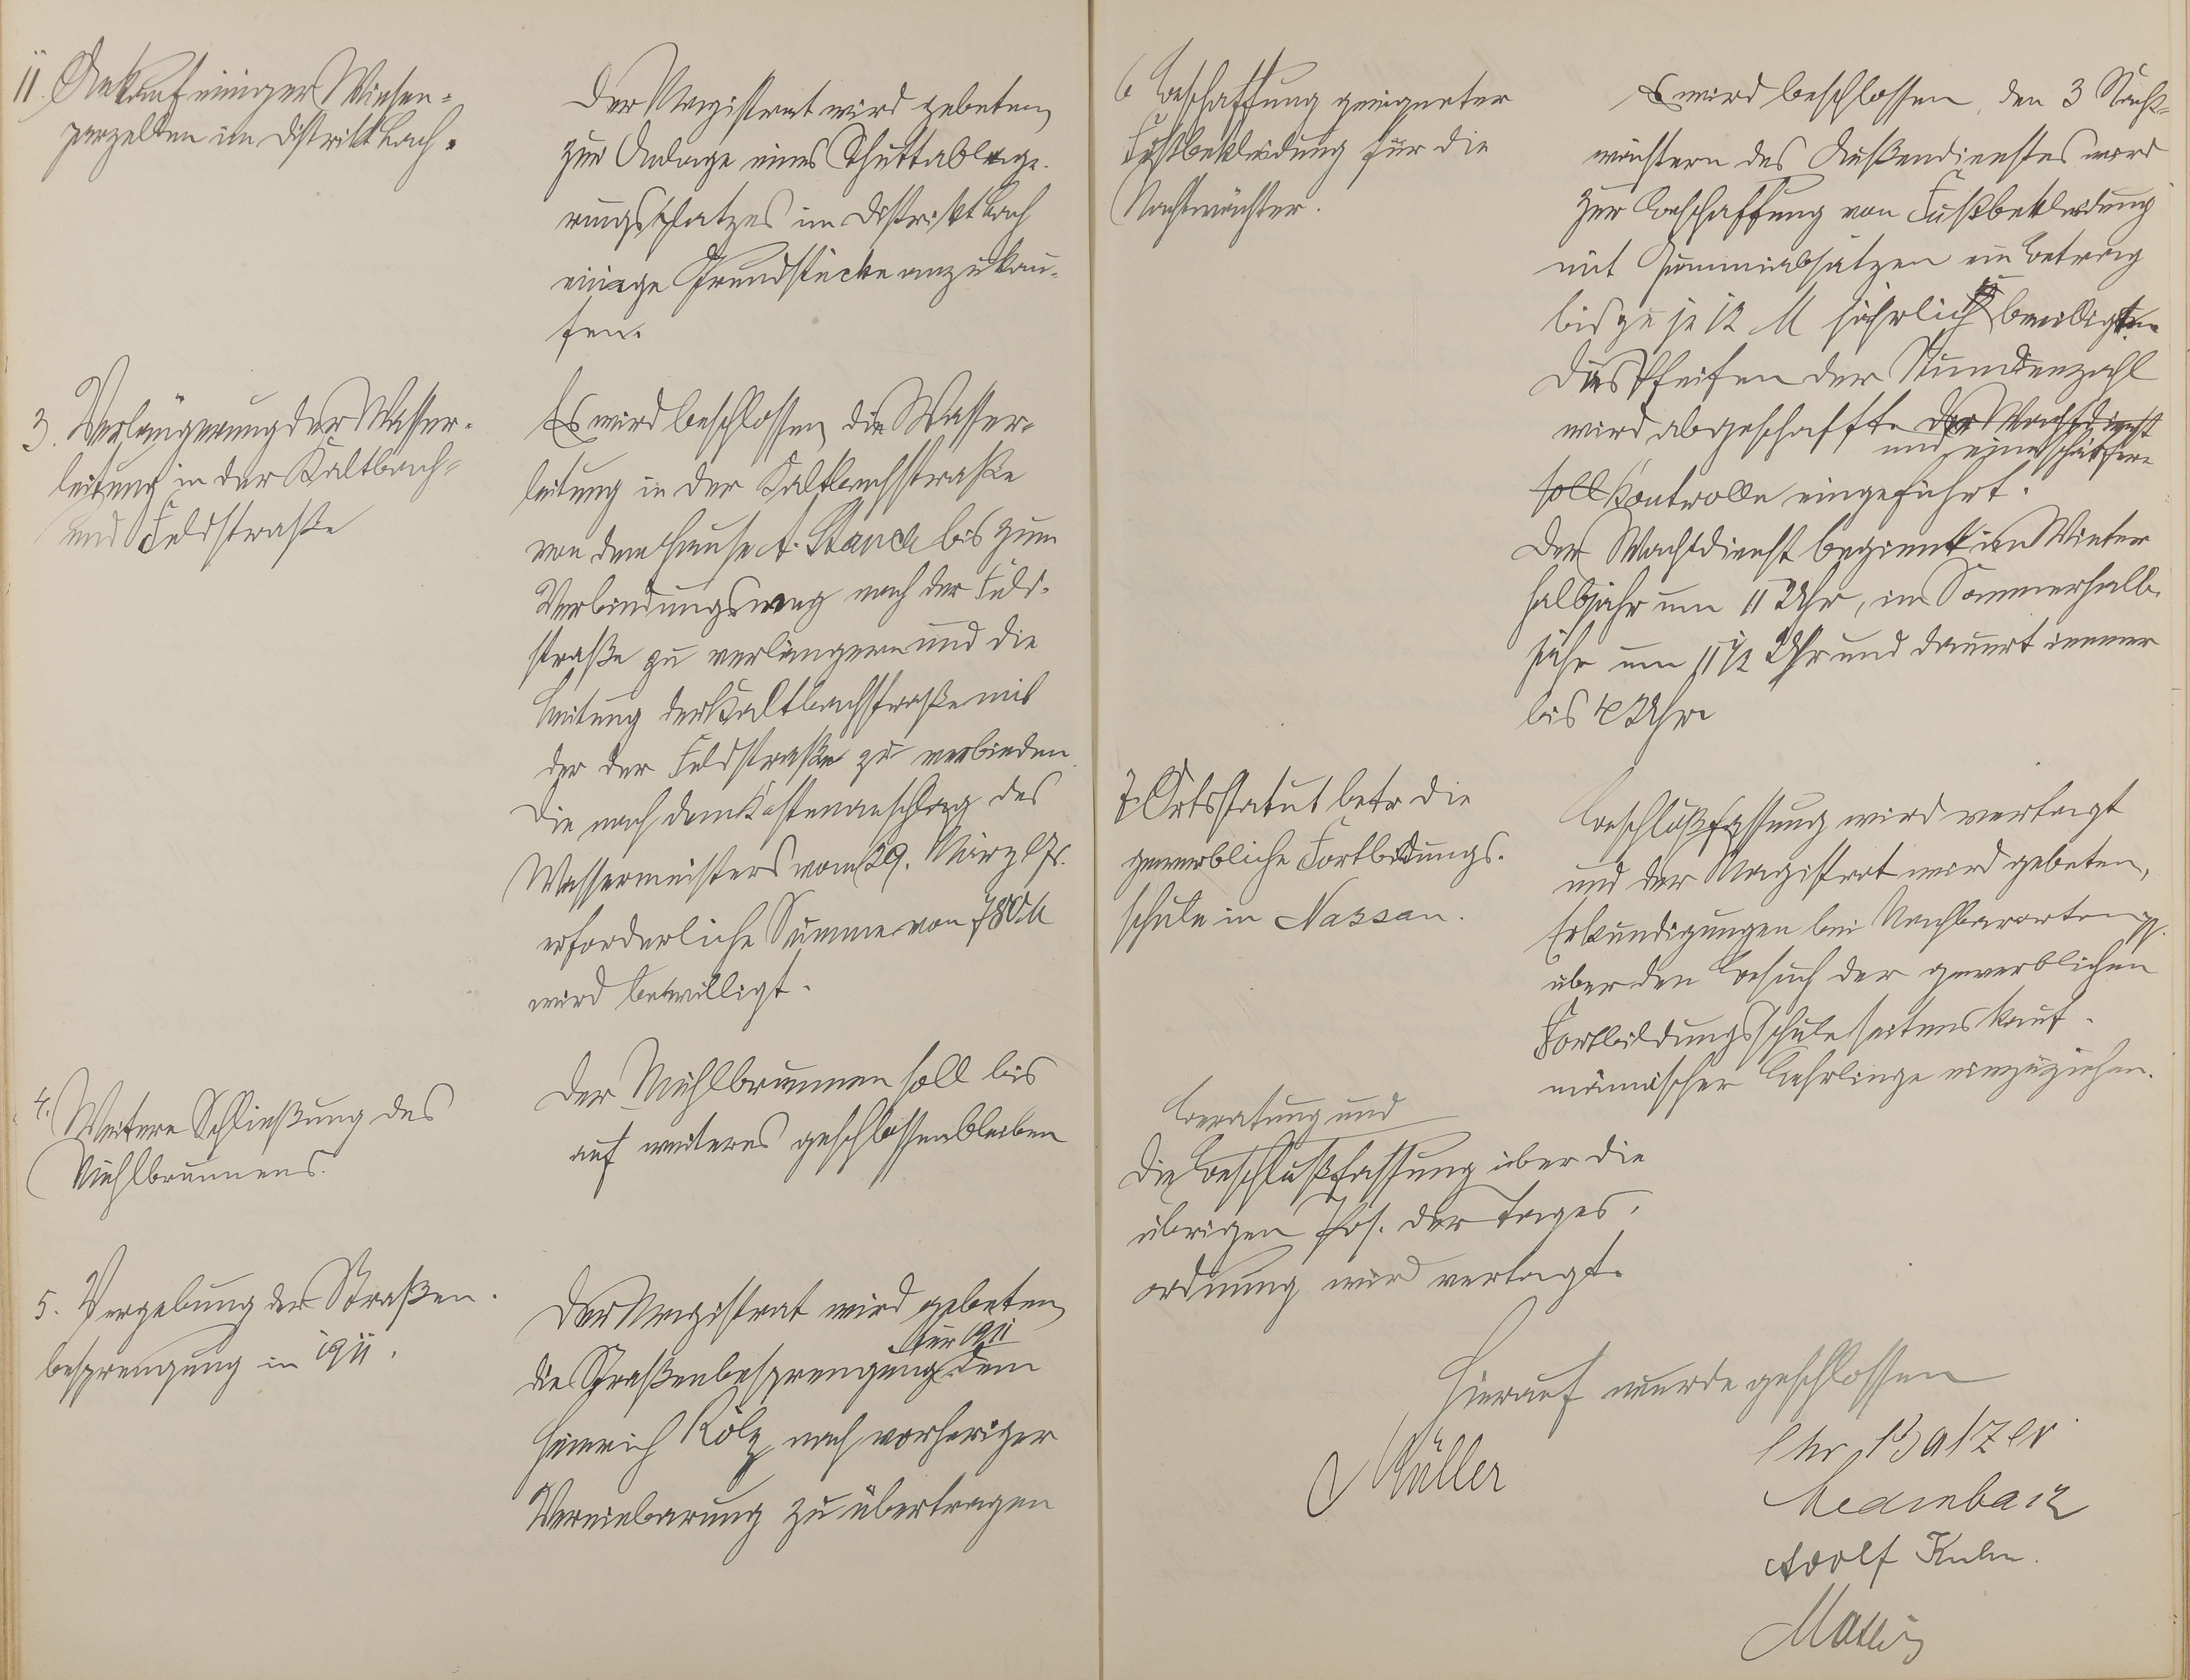 11. Ankauf einiger Wiesen-
parzellen im Distrikt Bach.
Der Magistrat wird gebeten,
zur Anlage eines Schuttablage-
rungsplatzes im Distrikt Bach
einige Grundstücke anzukau-
fen.
3. Verlängerung der Wasser-
leitung in der Kaltbach-
und Feldstraße
Es wird beschlossen, die Wasser-
leitung in der Kaltbachstraße
von dem Hause A. Stauch bis zum
Verbindungsweg nach der Feld-
straße zu verlängern und die
Leitung der Kaltbachstraße mit
der der Feldstraße zu verbinden.
Die nach dem Kostenanschlag des
Wassermeisters vom 29. März l. Js.
erforderliche Summe von 780 M
wird bewilligt.
4. Weitere Schließung des
Mühlbrunnens.
Der Mühlbrunnen soll bis
auf weiteres geschlossen bleiben
5. Vergebung der Straßen-
besprengung in 1911.
Der Magistrat wird gebeten,
für 1911
die Straßenbesprengung dem
Heinrich Kölz nach vorheriger
Vereinbarung zu übertragen
6 Beschaffung geeigneter
Fußbekleidung für die
Nachtwächter.
Es wird beschlossen, den 3 Nacht-
wächtern des Außendienstes word
zur Beschaffung von Fußbekleidung
mit Gummiabsätzen ein Betrag
bis zu je 12 M jährlich bewilligt.
Das Pfeifen der Stundenzahl
wird abgeschafft. Der Wachtdienst
und eine schärfere
soll Kontrolle eingeführt.
Der Wachtdienst beginnt im Winter
halbjahr um 11 Uhr, im Sommerhalb-
jahr um 11 1/2 Uhr und dauert immer
bis 4 Uhr.
7. Ortsstatut betr. die
gewerbliche Fortbildungs-
schule in Nassau.
Beschlußfassung wird vertagt
und der Magistrat wird gebeten,
Erkundigungen bei Nachbarorten pp.
über den Besuch der gewerblichen
Fortbildungsschule seitens kauf-
männischer Lehrlinge einzuziehen.
Beratung und
Die Beschlußfassung über die
übrigen Pos. der Tages-
ordnung wird vertagt.
Hierauf wurde geschlossen
Müller
Chr. Balzer
Medenbach
Adolf Kuhn.